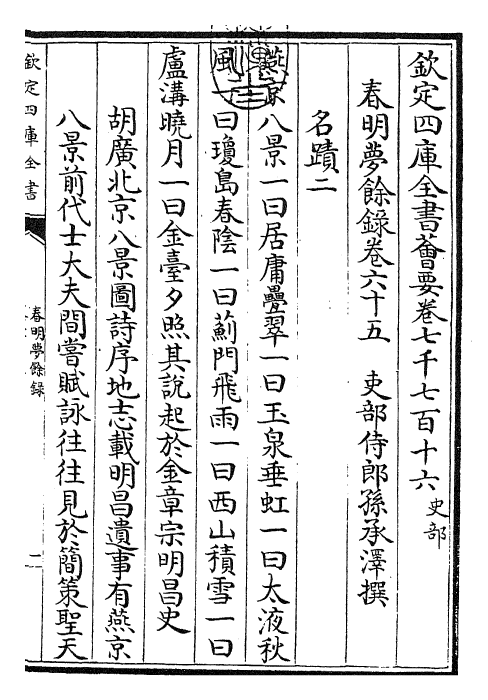 欽定四庫全書薈要卷七千七百十六 史部
春明夢餘錄卷六十五 吏部侍郎孫承澤撰
名蹟二
燕京八景一曰居庸疊翠一曰玉泉垂虹一曰太液秋
風一曰瓊島春陰一曰薊門飛雨一曰西山積雪一曰
盧溝曉月一曰金臺夕照其說起於金章宗明昌史
胡廣北京八景圖詩序地志載明昌遺事有燕京
八景前代士大夫間嘗賦詠往往見於簡策聖天
欽定四庫全書
春明夢餘錄